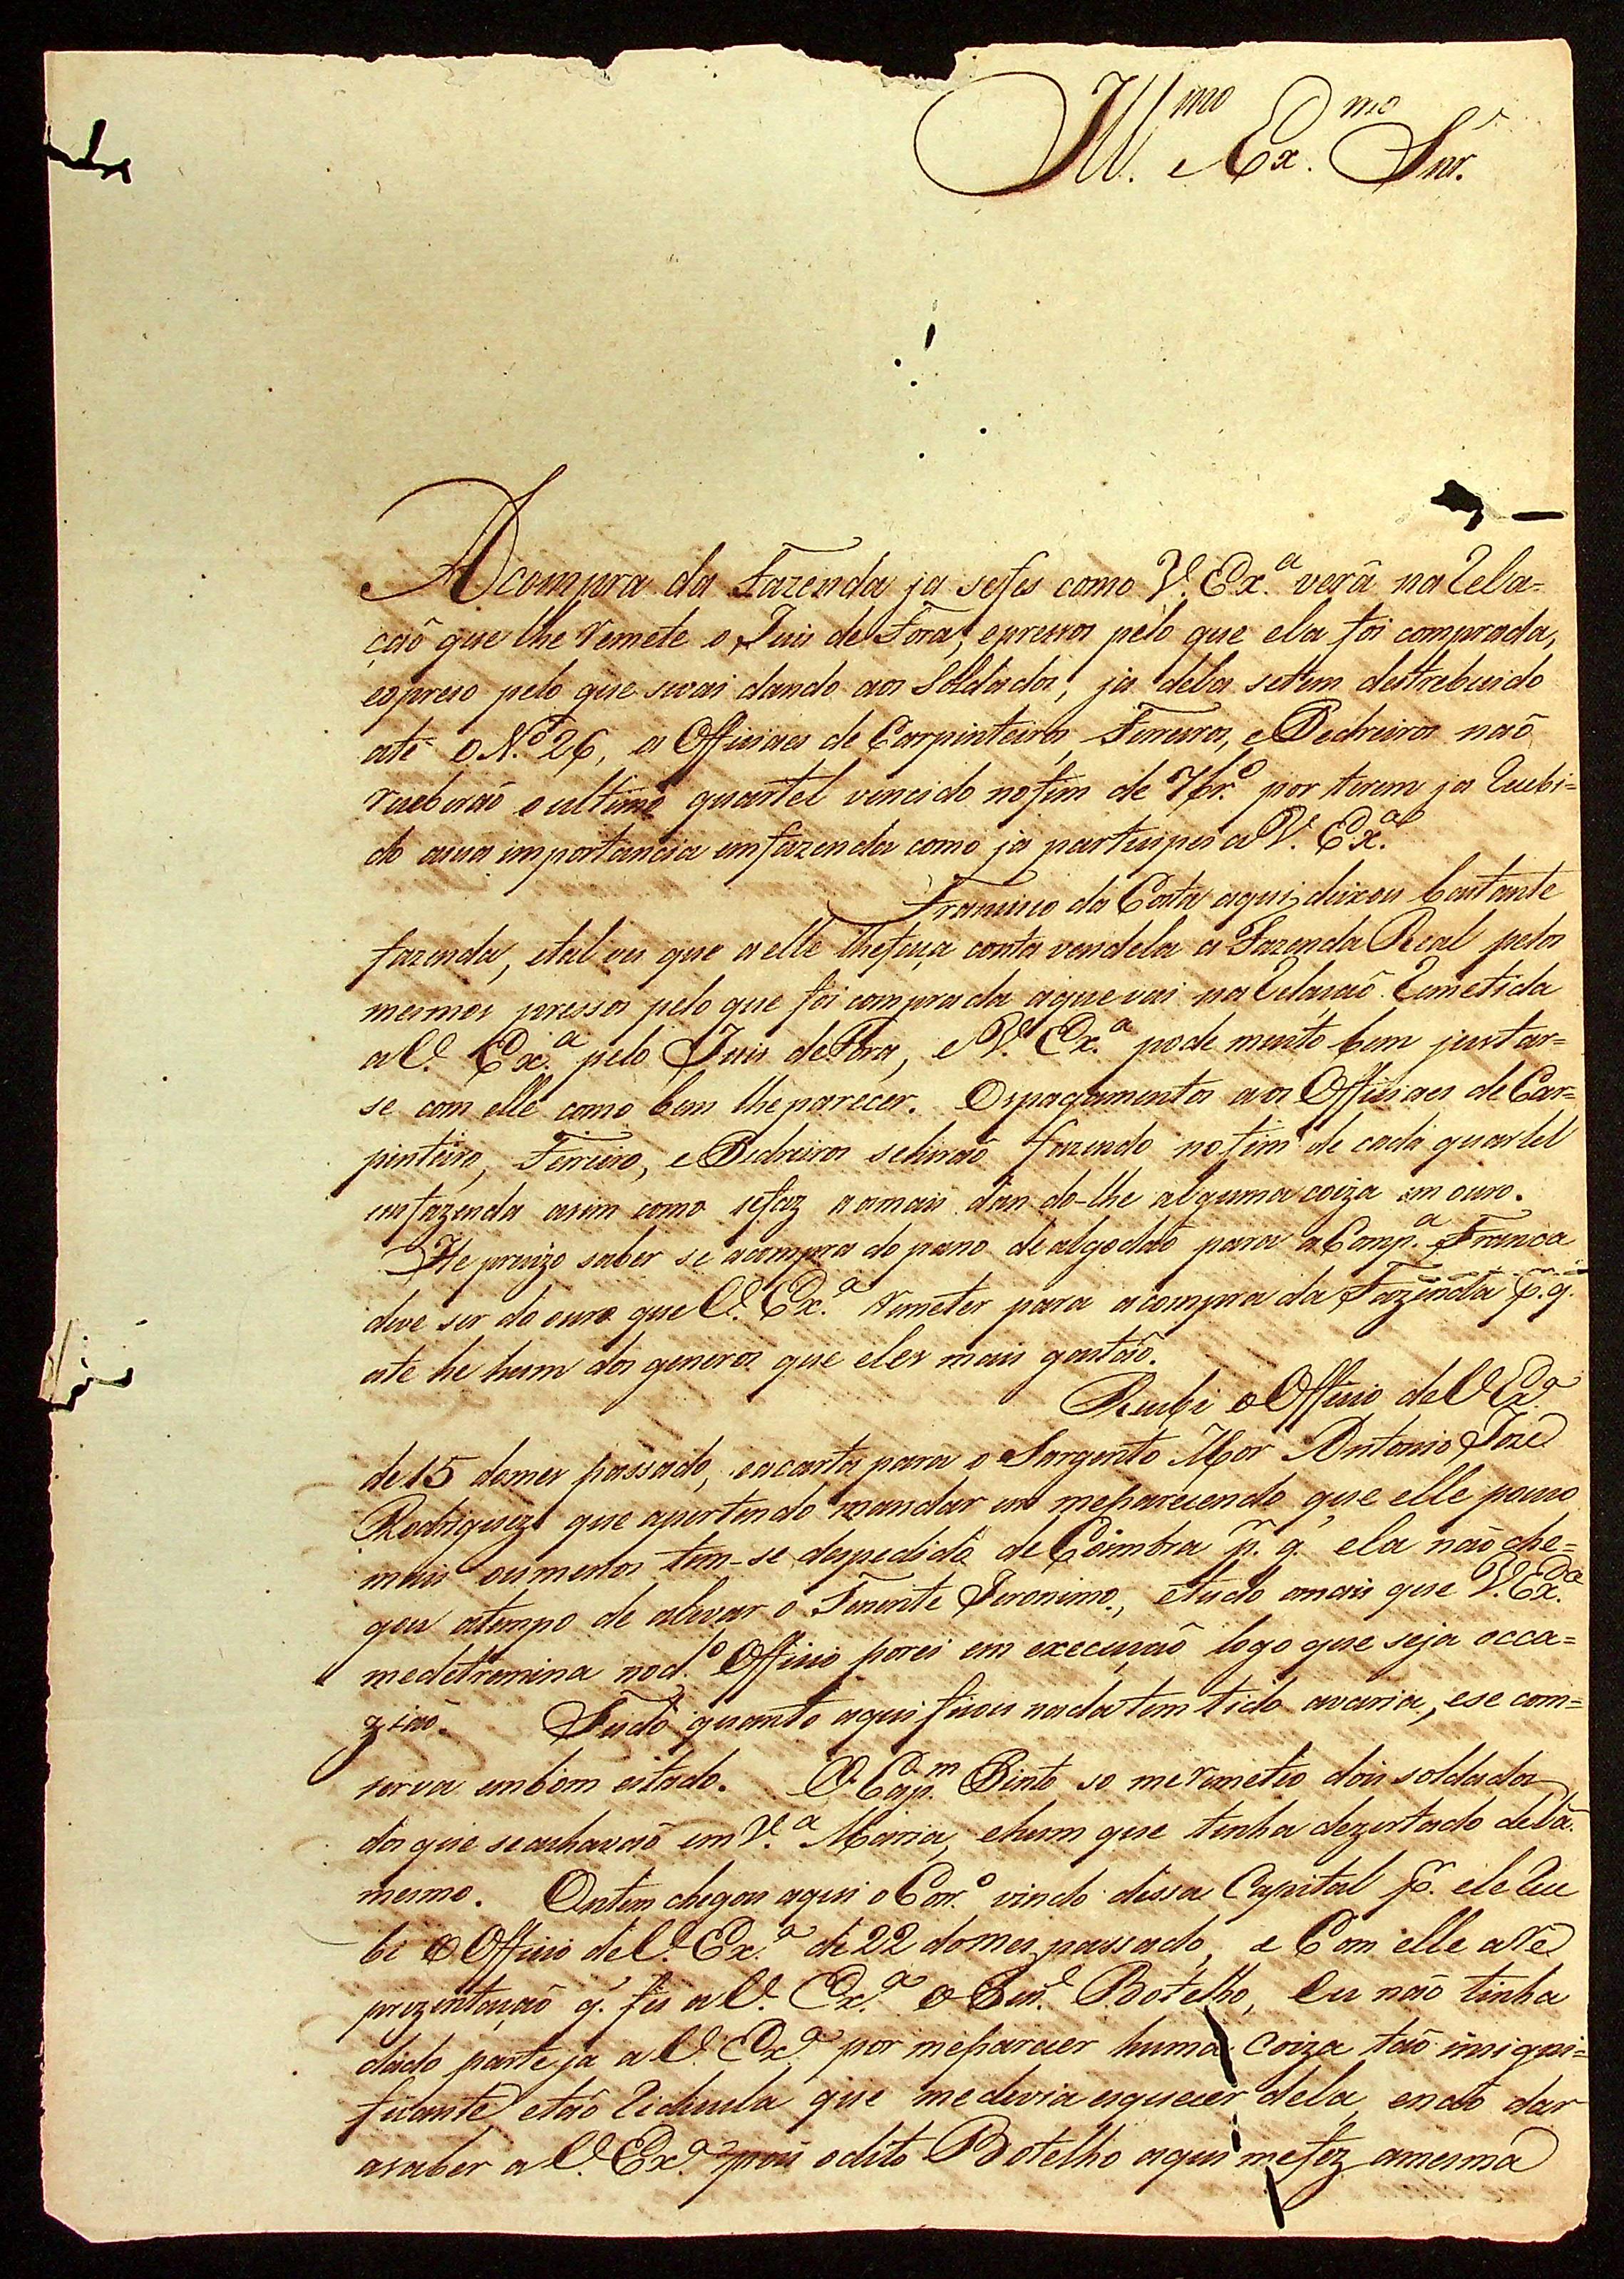 Ill.mo e Ex.mo Snr.
A compra da Fazenda ja sefes como V. Ex.a verâ na Rela=
çaõ que lhe remete o Juis de Fora, opressos pelo que ela foi comprada,
eopreso pelo que sevai dando aos Soldados, ja dela setem destrebuido
até o N.o 26, os Officiaes de Carpinteiros, Ferreiros, e Pedreiros naõ
receberaõ o ultimo quartel vencido nofim de 7br.o por terem ja Recebi=
do asua importancia emfazenda como ja participei a V. Ex.a
Francisco da Costa aqui deixou bastante
fazenda, etal ves que a elle lhefaça conta vendela a Fazenda Real pelos
mesmos pressos pelo que foi comprada aquevai na Relasaõ Remetida
a V. Ex.a pelo Juis deFora, e V. Ex.a pode muito bem justar=
se com elle como bem lheparecer. Ospagamentos aos Officiaes de Car=
pinteiro, Ferreiro, e Pedreiros sehiraõ fazendo nofim de cada quartel
emfazenda asim como sefaz aomais dan do-lhe alguma coiza em ouro.
He precizo saber se acompra do pano de algodaõ para a Comp.a Franca
deve ser do ouro que V. Ex.a remeter para acompra da Fazenda p. q.
ate he hum dos generos que eles mais gastaõ.
Recebi o Officio de V Ex.a
de 15 domes passado, eacarta para o Sargento Mor Antonio Joze
Rodriguez que apertendo mandar meparecendo que elle pouco
mais oumenos tem-se despedido de Coimbra p. q. ela não che=
gou atempo de alevar o Tenente Jeronimo, etudo omais que V. Ex.a
medetremina nod.o Officio porei em execusaõ logo que seja occa=
ziaõ. Tudo quanto aqui ficou nadatem tido avaria, ese com=
serva embom estado. O Cap.m Pinto so meremeteo dois soldados
dos que seachavaõ em V.a Maria, ehum que tinha dezertado delâ
mesmo. Ontem chegou aqui o Corr.o vindo dessa Capital p. ele Rece
bi o Officio de V. Ex.a de 22 domes passado, e Com elle aRe
prezentasaõ q. fes a V. Ex.a o Botelho, Eu não tinha
dado parte ja a V. Ex.a por meparecer huma coiza taõ insigni=
ficante etaõ Ridicula que medevia esquecer dela, enaõ dar
asaber a V. Ex.a pois odito Botelho aqui mefez amesma